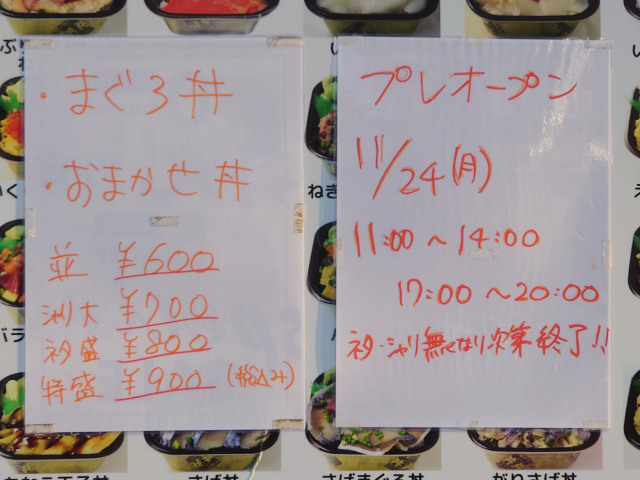 ・まぐろ丼
・おまかせ丼
並 ¥600
シャリ大 ¥700
ネタ盛 ¥800
特盛 ¥900 (税込み)
プレオープン
11/24(月)
11:00～14:00
17:00～20:00
ネタ・シャリ無くなり次第終了!!
さば丼
さばまぐろ丼
がりさば丼